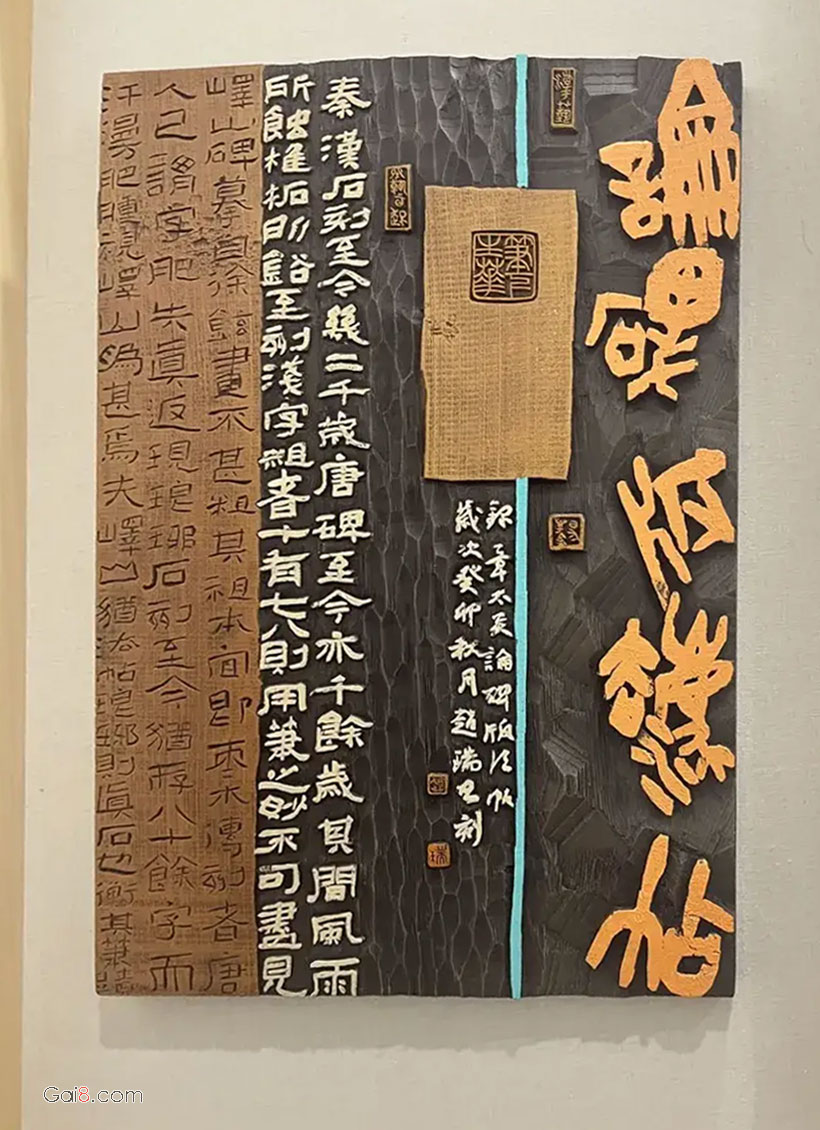 論碑版法帖
録章太炎論碑版法帖
歲次癸卯秋月趙瑞刻
秦漢石刻至今幾二千歲唐碑至今亦千餘歲其間風雨
所蝕椎柘所谿至刻漢字粗者十有七八則用筆之妙不可盡見
嶧山碑摹自徐鉉畫不甚粗其祖本宜即棗木傳刻者唐
人已謂字肥失真返現琅琊石刻至今猶存八十餘字而
汗漫肥腫視嶧山為甚焉夫嶧山猶木帖琅邪則真石也衡其筆
Gai8.com